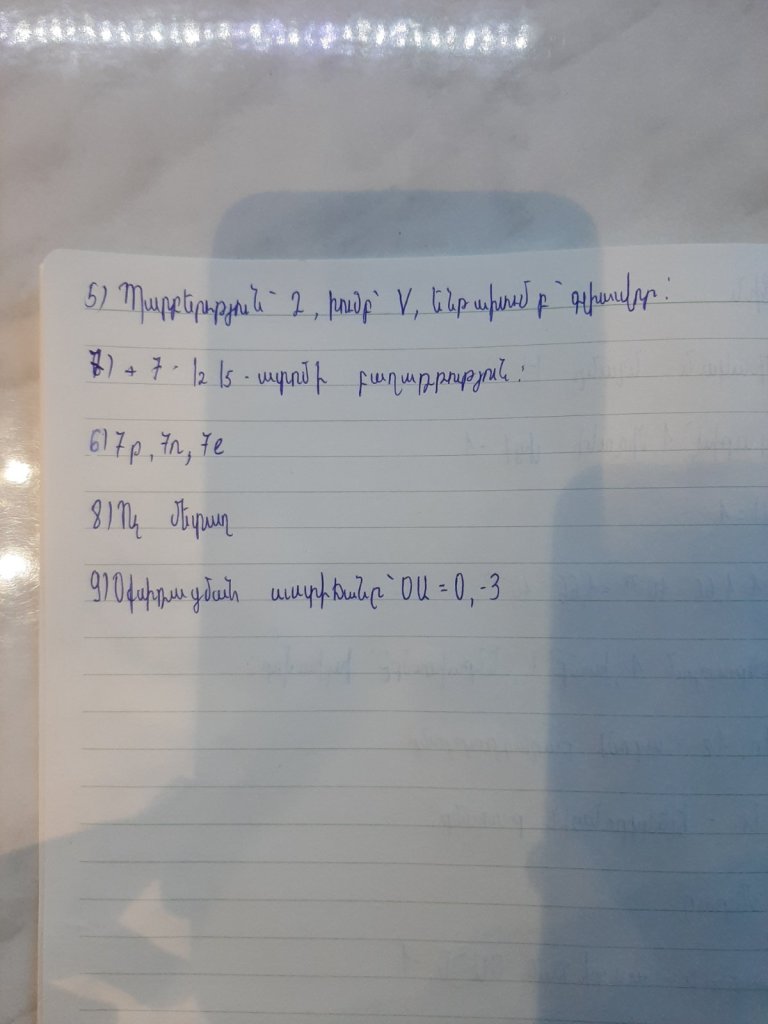 5) Պարբերություն՝ 2, խումբ՝ V, ենթախումբ՝ գլխավոր:
7) + 7 · )2 )5 - ատոմի բաղադրությունն:
6) 7p, 7n, 7e
8) Ոչ մետաղ
9) Օքսիդացման աստիճանը՝ ՕԱ = 0, -3